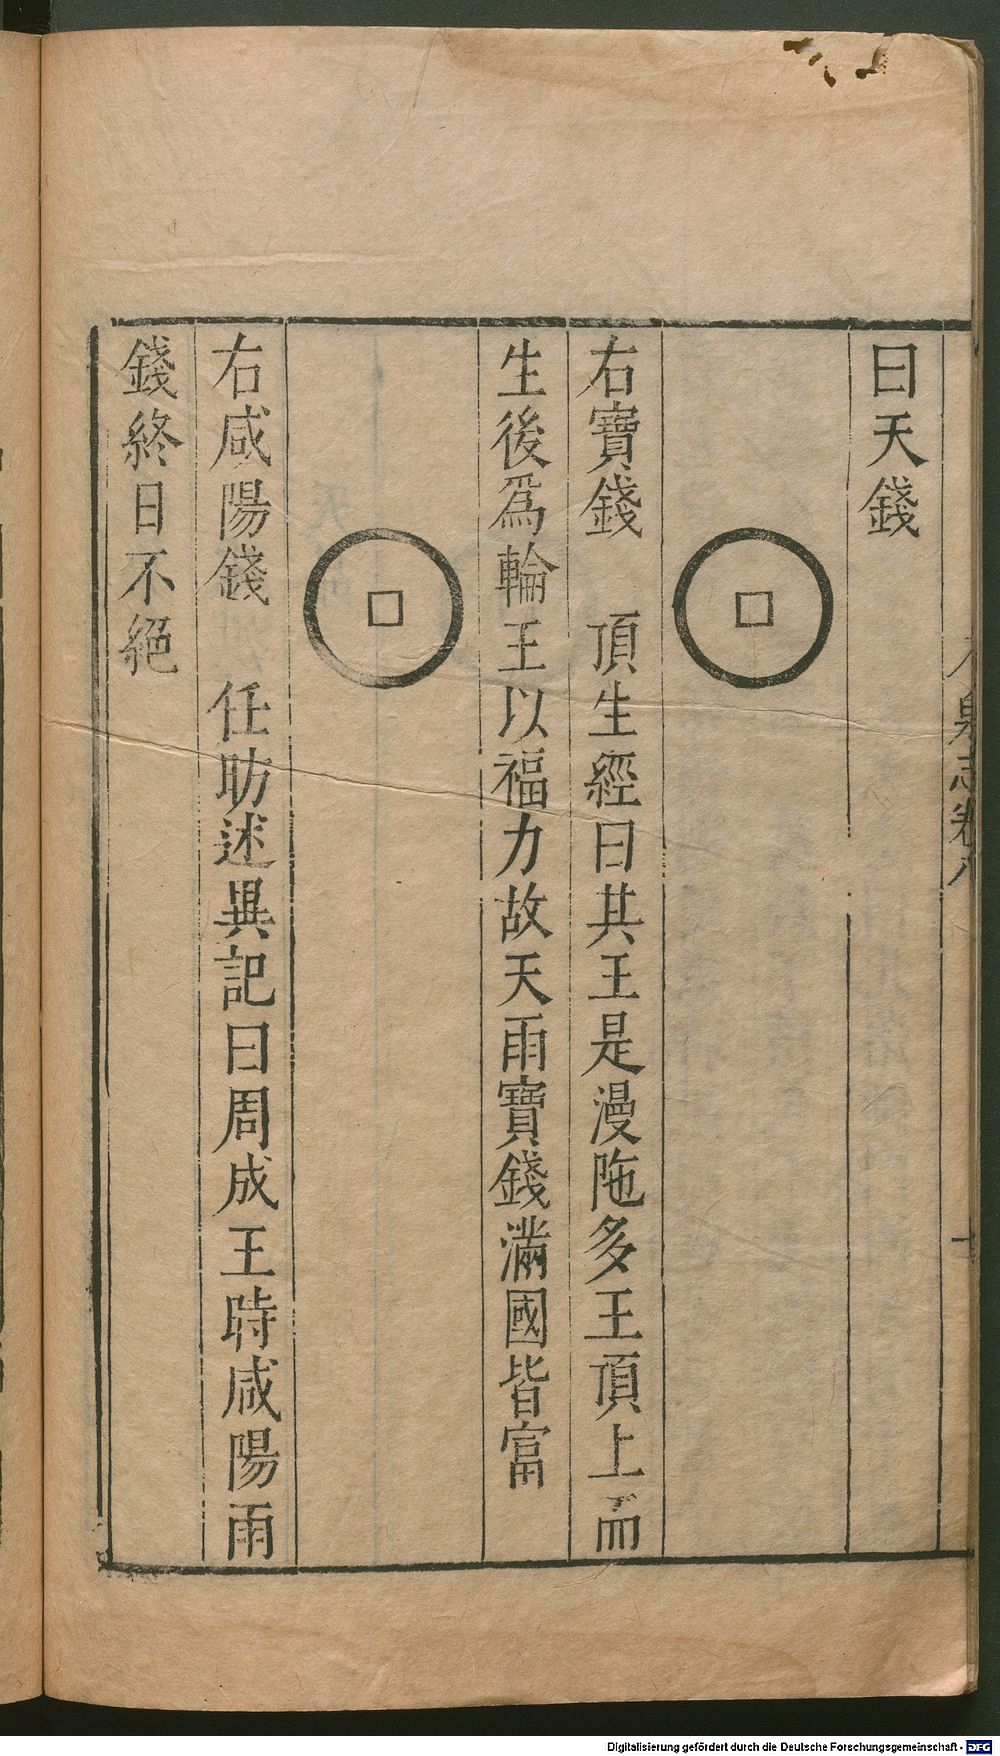 曰天錢
右寶錢　頂生經曰其王是漫陁多王頂上而
生後爲輪王以福力故天雨寶錢滿國皆富
右咸陽錢　任昉述異記曰周成王時咸陽雨
錢終日不絕
泉志卷八
Digitalisierung gefördert durch die Deutsche Forschungsgemeinschaft - DFG